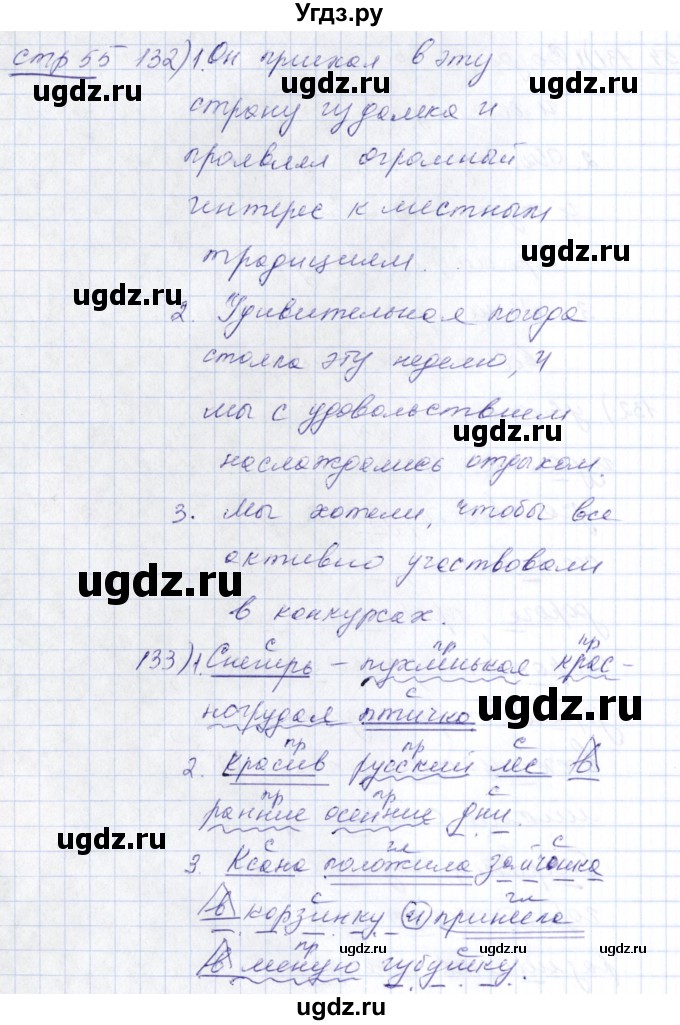 Угдз.ру
стр 55 132) 1. Он приехал в эту
страну издалека и
проявлял огромный
интерес к местным
традициям.
2. Удивительная погода
стояла эту неделю, и
мы с удовольствием
наслаждались отдыхом.
3. Мы хотели, чтобы все
активно участвовали
в конкурсах.
с пр пр
133) 1. Снегирь – пухленькая крас-
с
ногрудая птичка
пр пр с
2. Красив русский лес в
пр пр с
ранние осенние дни.
с гл с
3. Ксана положила зайчонка
с гл
в корзинку и принесла
пр с
в лесную избушку.
ugdz.ru
ugdz.ru
ugdz.ru
ugdz.ru
ugdz.ru
ugdz.ru
ugdz.ru
ugdz.ru
ugdz.ru
ugdz.ru
ugdz.ru
ugdz.ru
ugdz.ru
ugdz.ru